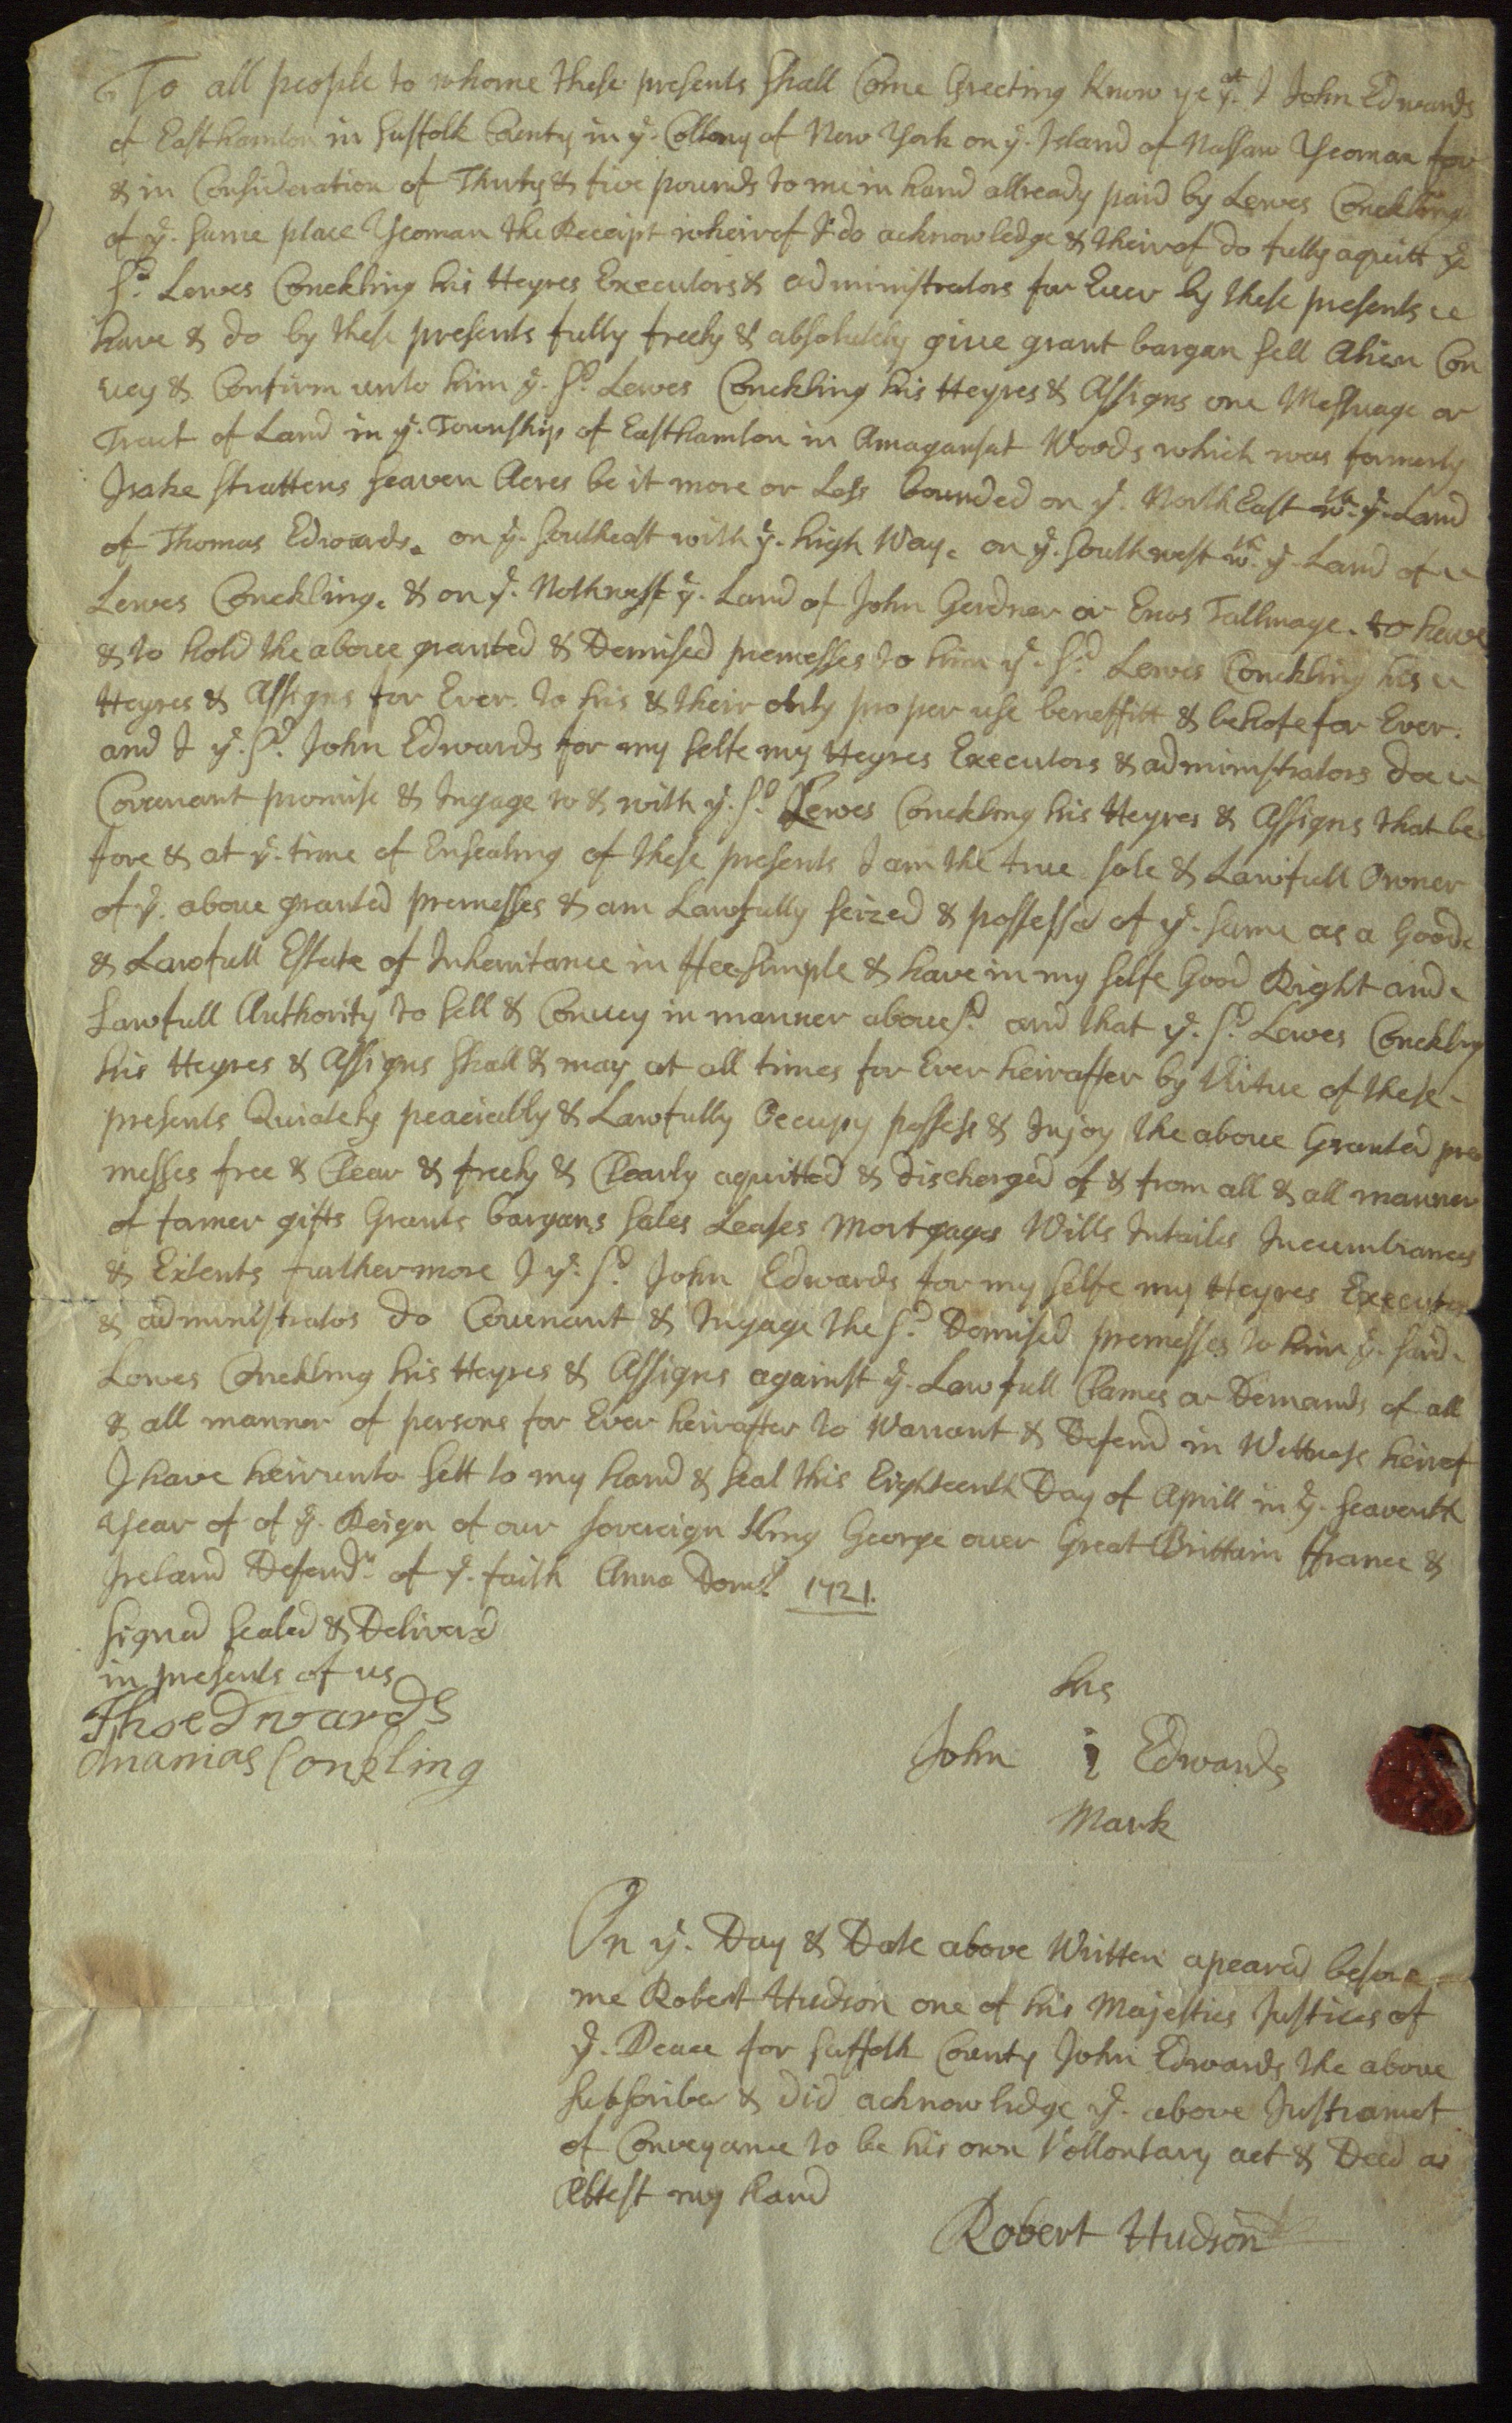 To all people to whome these presents shall Come Greeting Know ye yt. I John Edwards
of Easthamton in Suffolk County in ye. Collony of New York on ye. Island of Nassaw Yeoman for
& in Consideration of Thirty & five pounds to me in hand allready paid by Lewes Conckling
of ye. same place Yeoman the Receipt wheirof I do acknowledge & theirof do fully aquitt ye
sd. Lewes Conckling his Heyres Executors & administrators for Ever by these presents
have & do by these presents fully freely & absolutely give grant bargan sell Alien Con
vey & Confirm unto him ye. sd. Lewes Conckling his Heyres & Assigns one Messuage or
Tract of Land in ye. Township of Easthamton in Amagansat Woods which was formerly
Isake Strattens seaven Acres be it more or Less bounded on ye. North East wth. ye. Land
of Thomas Edwards. on ye. Southeast with ye. high Way. on ye. Southwest wth. ye. Land of
Lewes Conckling. & on ye. Nothwest ye. Land of John Gerdner or Enos Tallmage. to have
& to hold the above granted & Demised premesses to him ye. sd. Lewes Conckling his
Heyres & Assigns for Ever. to his & their only proper use beneffitt & behofe for Ever.
and I ye. sd. John Edwards for my selfe my Heyres Executors & administrators doe
Covenant promise & Ingage to & with ye. sd. Lewes Conckling his Heyres & Assigns that be
fore & at ye. time of Ensealing of these presents I am the true sole & Lawfull Owner
of ye. above granted premesses & am Lawfully seized & possessd of ye. same as a Good
& Lawfull Estate of Inheritance in ffee simple & have in my selfe Good Right and
Lawfull Authority to sell & Convey in manner abovesd. and that ye. sd. Lewes Conckling
his Heyres & Assigns shall & may at all times for Ever heirafter by Virtue of these
presents Quiately peaciably & Lawfully Occupy possess & Injoy the above Granted pre
messes free & Clear & freely & Clearly aquitted & discharged of & from all & all manner
of former gifts Grants bargans sales Leases Mortgages Wills Intailes Incumbrances
& Extents furthermore I ye. sd. John Edwards for my selfe my Heyres Executors
& administratos do Covenant & Ingage the sd. Demised premesses to him ye. said
Lewes Conckling his Heyres & Assigns against ye. Lawfull Clames or Demands of all
& all manner of persons for Ever heirafter to Warrant & Defend in Wittness heirof
I have heirunto sett to my hand & seal this Eighteenth Day of Aprill in ye. seaventh
Year of of ye. Reign of our sovereign King George over Great Brittain ffrance &
Ireland Defendr. of ye. faith Anno Domi. 1721.
Signed Sealed & Deliverd
in presents of us
Tho edwards
Ananias Conkling
his
John i Edwards
Mark
On ye. Day & Date above Written apeared before
me Robert Hudson one of his Majesties Justices of
ye. Peace for Suffolk County John Edwards the above
subscriber & did acknowledge ye. above Instrament
of Conveyance to be his own Vollontary act & Deed as
Attest my hand
Robert Hudson